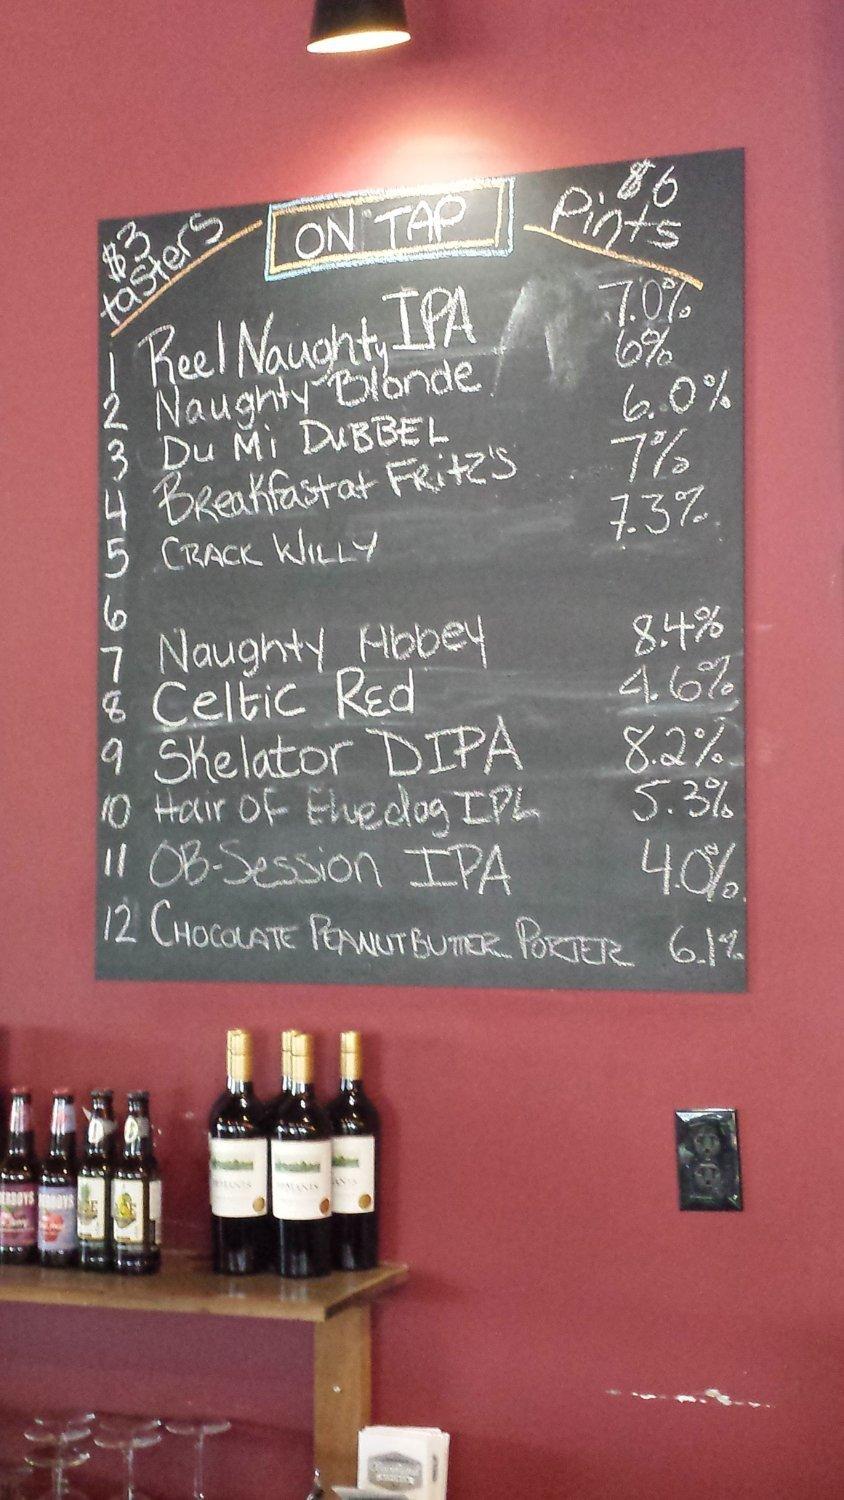 $3 tasters
ON TAP
$6 Pints
1 Reel Naughty IPA 7.0%
2 Naughty Blonde 6%
3 Du Mi DUBBEL 6.0%
4 Breakfast at FRitz's 7%
5 CRACK WILLY 7.3%
6
7 Naughty Abbey 8.4%
8 Celtic Red 4.6%
9 Skelator DIPA 8.2%
10 Hair OF Eluedog IPL 5.3%
11 OB-Session IPA 4.0%
12 CHOCOLATE PEANUTBUTTER PORTER 6.1%